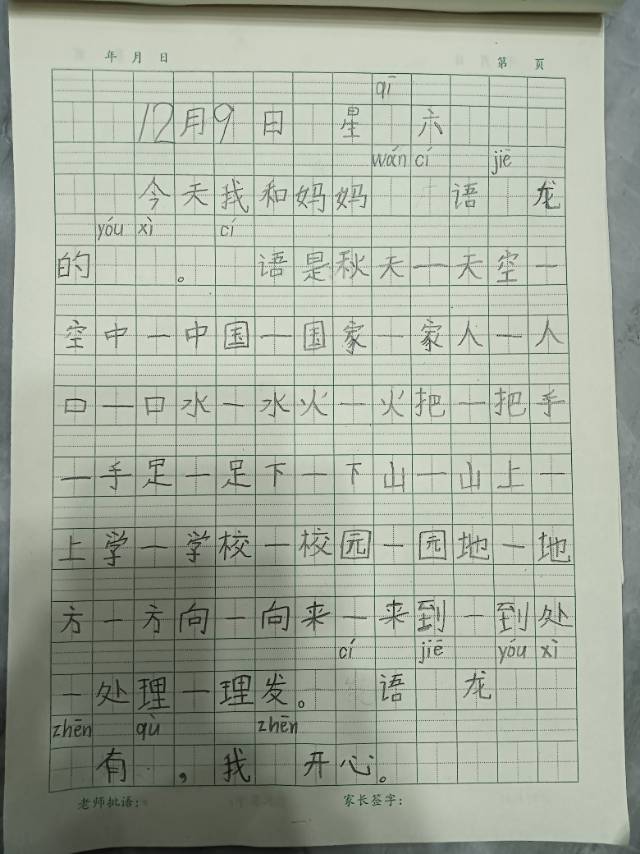 年 月 日 第 页
qī
12月9日 星 六
wán cí jiē
今天我和妈妈 语 龙
yóu xì cí
的 。 语是秋天一天空一
空中一中国一国家一家人一人
口一口水一水火一火把一把手
一手足一足下一下山一山上一
上学一学校一校园一园地一地
方一方向一向来一来到一到处
cí jiē yóu xì
一处理一理发。 语 龙
zhēn qù zhēn
有 ,我 开心。
老师批语: 家长签字: